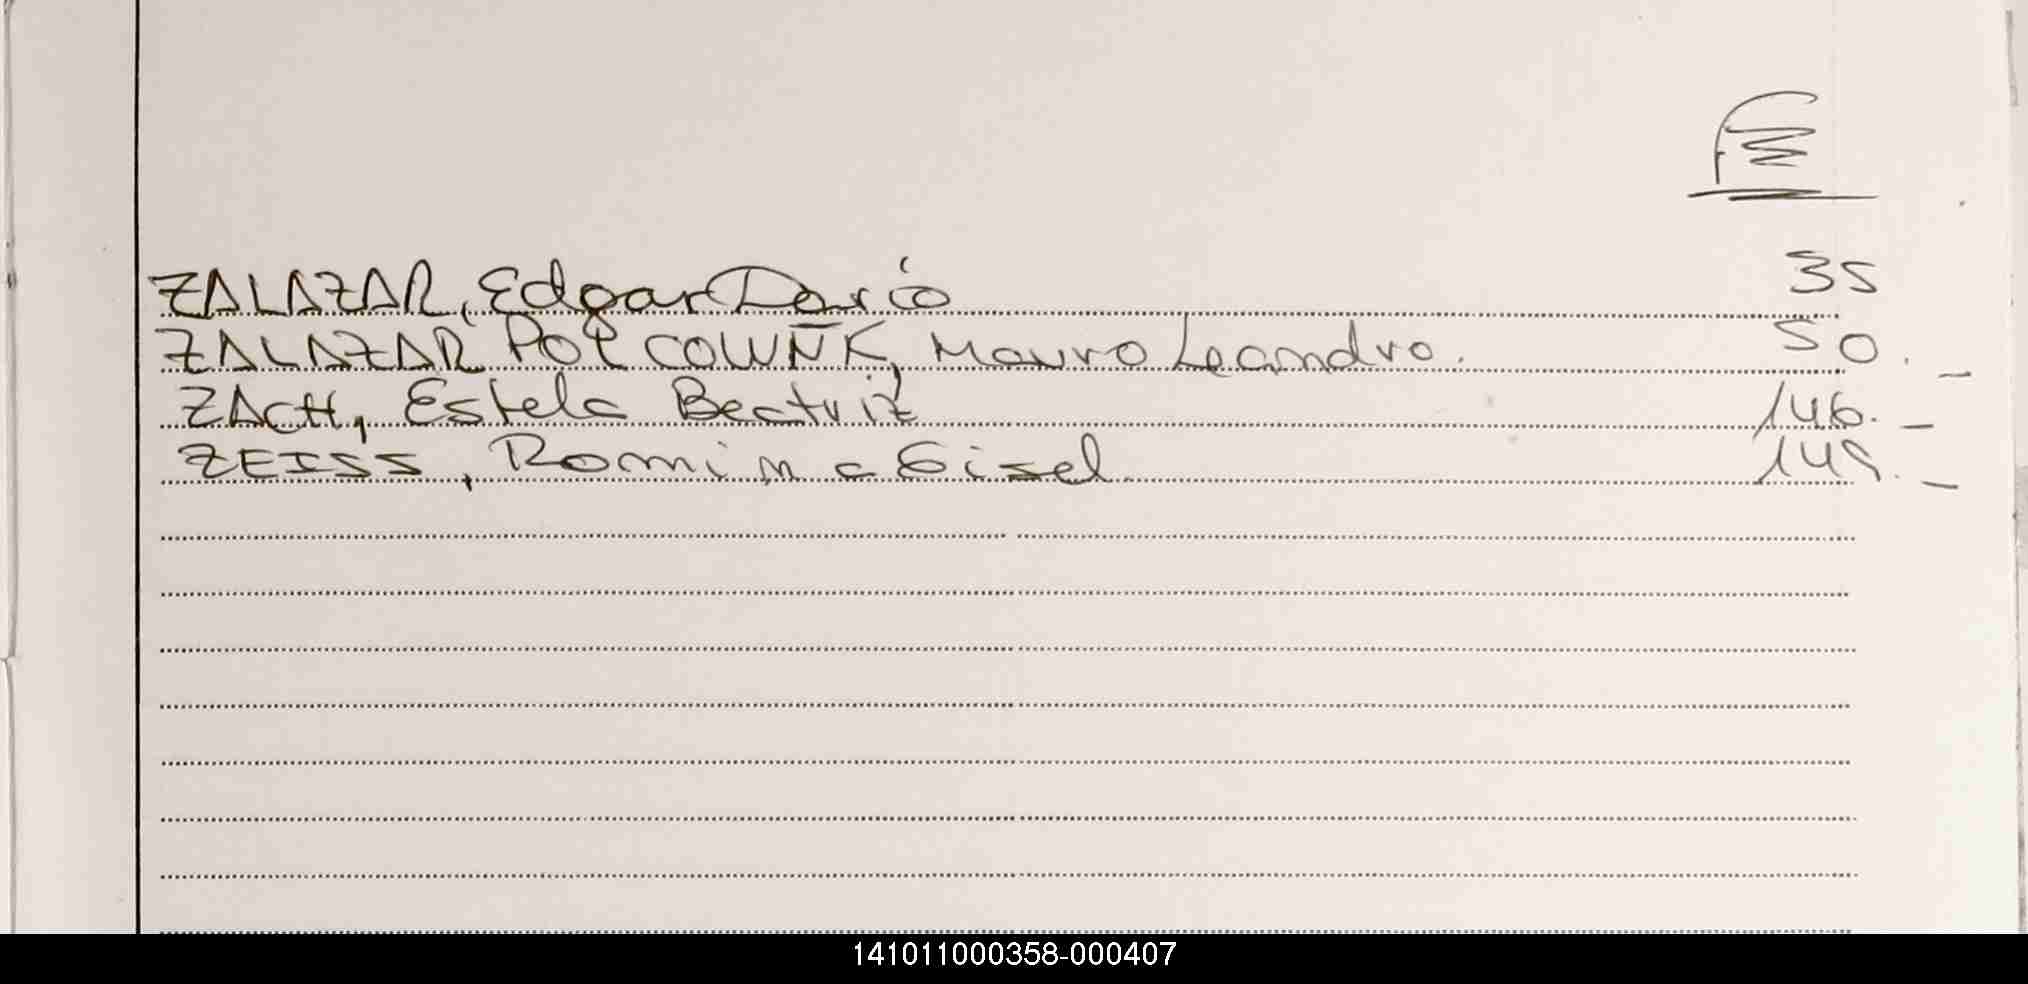 ZALAZAR, Edgar Darío 35
ZALAZAR POLCOWÑK, Mauro Leandro. 50.-
ZACH, Estela Beatriz 146.-
ZEISS, Romina Gisel. 149.-
141011000358-000407